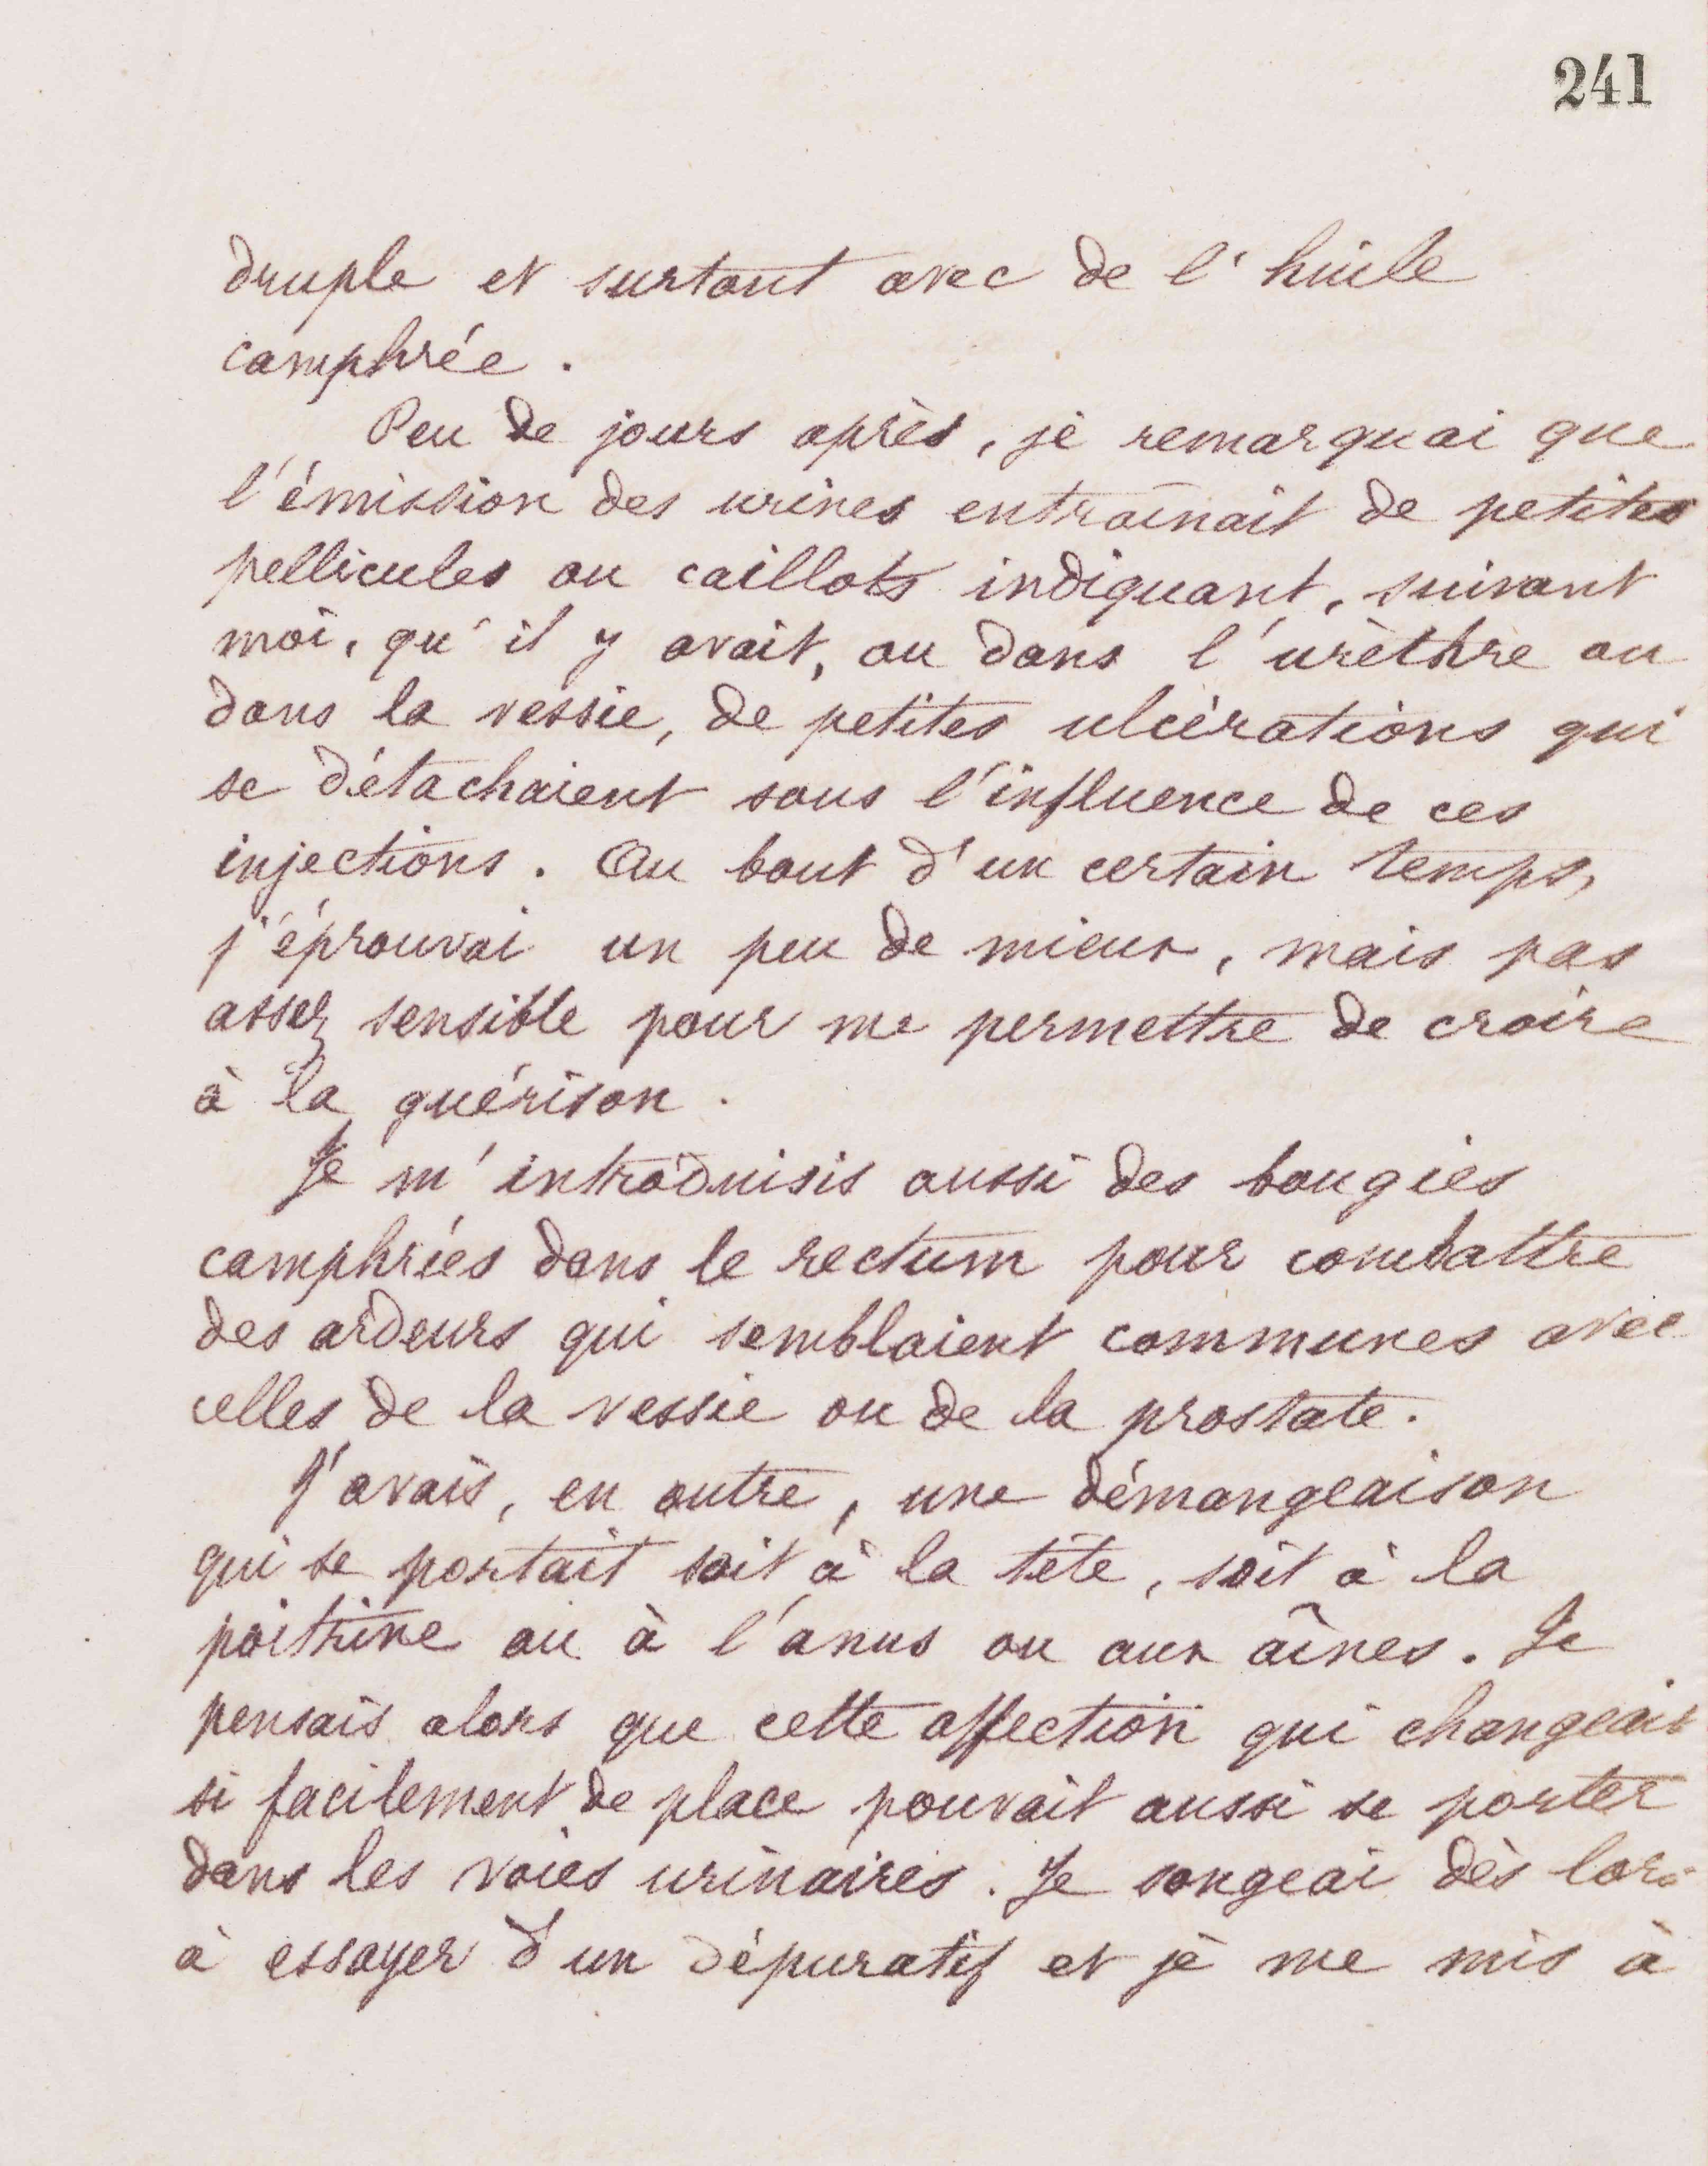 241
druple et surtout avec de l'huile
camphrée.
Peu de jours après, je remarquai que
l'émission des urines entraînait de petites
pellicules ou caillots indiquant, suivant
moi, qu'il y avait, ou dans l'urèthre ou
dans la vessie, de petites ulcérations qui
se détachaient sous l'influence de ces
injections. Au bout d'un certain temps,
j'éprouvai un peu de mieux, mais pas
assez sensible pour me permettre de croire
à la guérison.
Je m'introduisis aussi des bougies
camphrées dans le rectum pour combattre
des ardeurs qui semblaient communes avec
celles de la vessie ou de la prostate.
J'avais, en outre, une démangeaison
qui se portait soit à la tête, soit à la
poitrine ou à l'anus ou aux aînes. Je
pensais alors que cette affection qui changeait
si facilement de place pouvait aussi se porter
dans les voies urinaires. Je songeai dès lors
à essayer d'un dépuratif et je me mis à